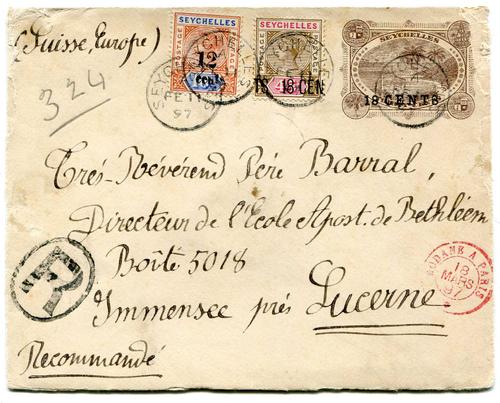 (Suisse, Europe)
324
SEYCHELLES
POSTAGE
POSTAGE
12
cents
SEYCHELLES
POSTAGE
18 CEN
SEYCHELLES
18 CENTS
SEYCHELLES
FE 11
97
Très-Révérend Père Barral,
Directeur de l'Ecole Apost. de Bethléem
Boîte 5018
Immensee près Lucerne
Recommandé
R
MODANE A PARIS
18
MARS
97